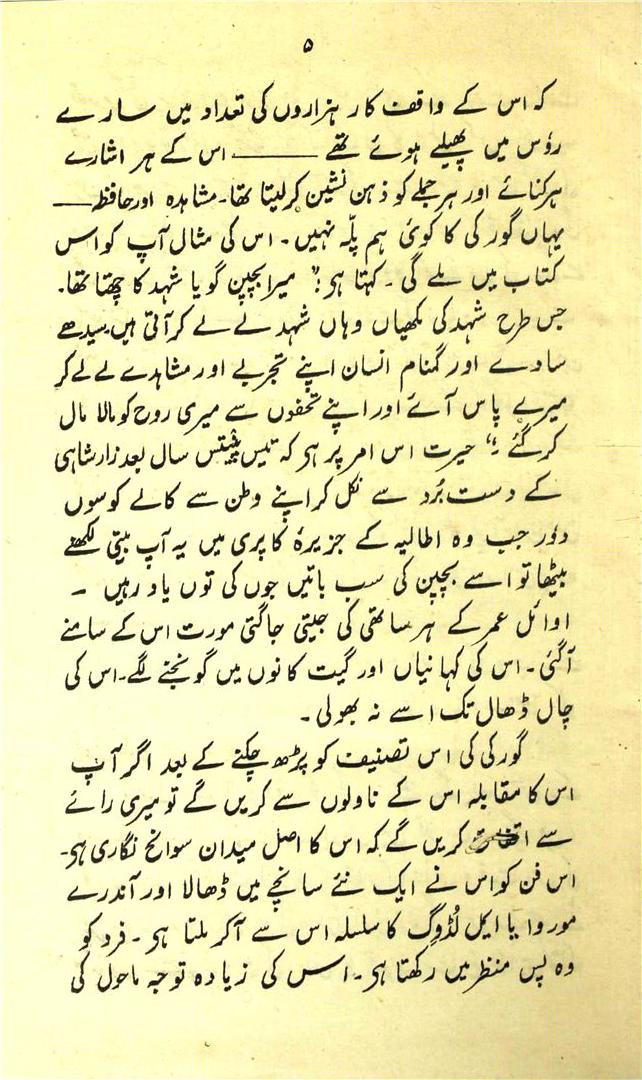 ۵
کہ اس کے واقف کار ہزاروں کی تعداد میں سارے
رؤس میں پھیلے ہوئے تھے ــــــــ اس کے ہر اشارے
ہر کنائے اور ہر جملے کو ذہن نشین کر لیتا تھا۔ مشاہدہ اور حافظہ ــــ
یہاں گورکی کا کوئی ہم پلّہ نہیں۔ اس کی مثال آپ کو اس
کتاب میں ملے گی۔ کہتا ہی:۔" میرا بچپن گویا شہد کا چھتا تھا۔
جس طرح شہد کی مکھیاں وہاں شہد لے لے کر آتی ہیں، سیدھے
سادے اور گمنام انسان اپنے تجربے اور مشاہدے لے لے کر
میرے پاس آئے اور اپنے تحفوں سے میری روح کو مالا مال
کر گئے :۔" حیرت اس امر پر ہی کہ تیس پینتیس سال بعد زار شاہی
کے دست بُرد سے نکل کر اپنے وطن سے کالے کوسوں
دؤر جب وہ اطالیہ کے جزیرۂ کاپری میں یہ آپ بیتی لکھنے
بیٹھا تو اسے بچپن کی سب باتیں جوں کی توں یاد رہیں ۔
اوائل عمر کے ہر ساتھی کی جیتی جاگتی مورت اس کے سامنے
آ گئی۔ اس کی کہانیاں اور گیت کانوں میں گونجنے لگے۔ اس کی
چال ڈھال تک اسے نہ بھولی۔
گورکی کی اس تصنیف کو پڑھ چکنے کے بعد اگر آپ
اس کا مقابلہ اس کے ناولوں سے کریں گے تو میری رائے
سے کریں گے کہ اس کا اصل میدان سوانح نگاری ہی۔
اس فن کو اس نے ایک نئے سانچے میں ڈھالا اور آندرے
موروا یا ایمل لُڈوگ کا سلسلہ اس سے آ کر ملتا ہی۔ فرد کو
وہ پس منظر میں رکھتا ہی۔ اس کی زیادہ توجہ ماحول کی